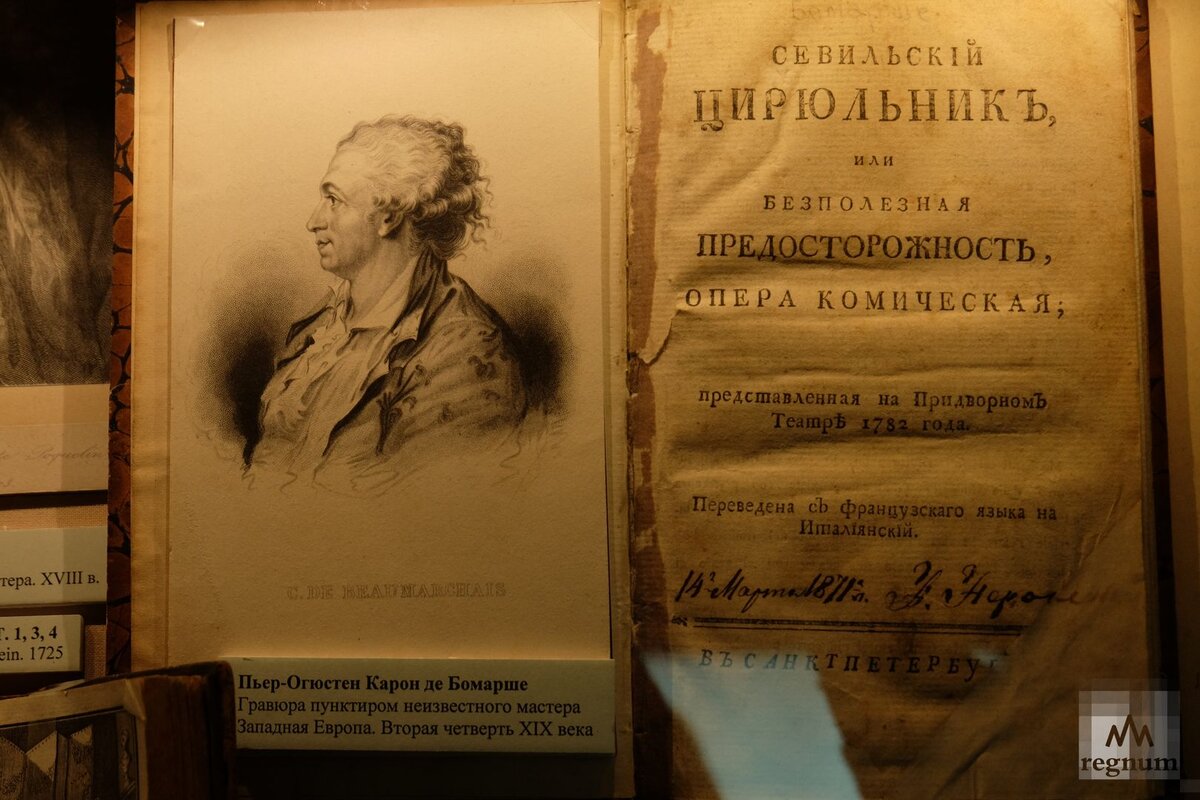 C. DE BEAUMARCHAIS
Пьер-Огюстен Карон де Бомарше
Гравюра пунктиром неизвестного мастера
Западная Европа. Вторая четверть XIX века
СЕВИЛЬСКІЙ
ЦИРЮЛЬНИКЪ,
ИЛИ
БЕЗПОЛЕЗНАЯ
ПРЕДОСТОРОЖНОСТЬ,
ОПЕРА КОМИЧЕСКАЯ;
представленная на Придворномъ
Театрѣ 1782 года.
Переведена съ французскаго языка на
Италіянскій.
14 Марта 1871 г.
ВЪ САНКТПЕТЕРБУ
тера. XVIII в.
Т. 1, 3, 4
ein. 1725
regnum